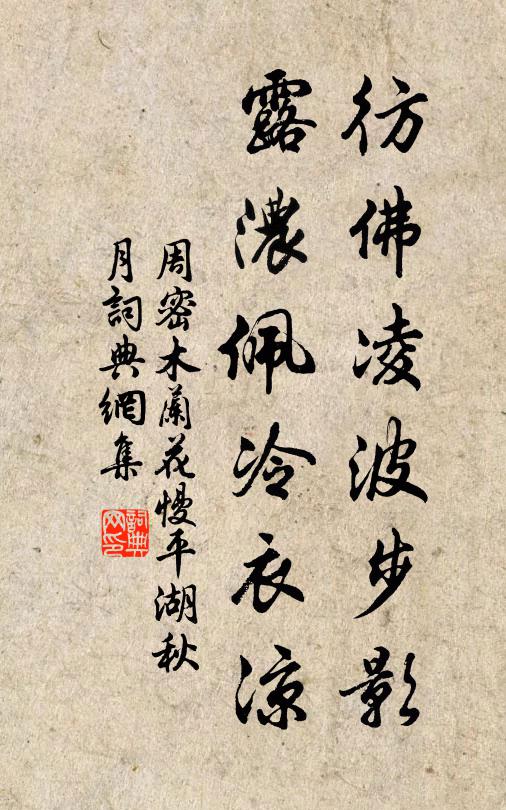 彷佛凌波步影
露濃佩冷衣凉
周密木蘭花慢平湖秋
月詞典網集
詞典网印